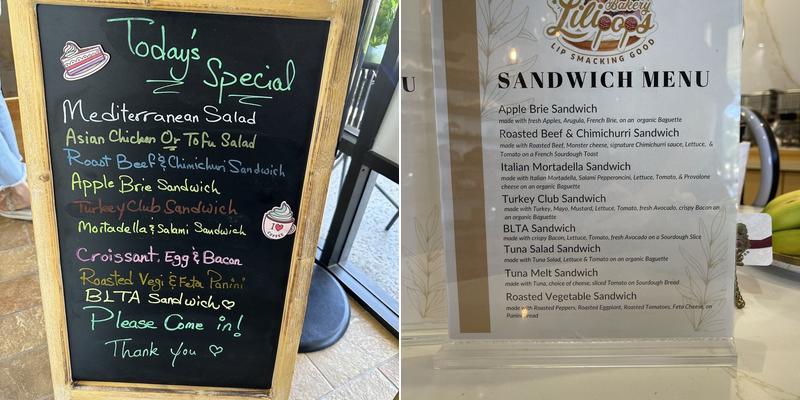 Today's
Special
Mediterranean Salad
Asian Chicken Or Tofu Salad
Roast Beef & Chimichurri Sandwich
Apple Brie Sandwich
Turkey Club Sandwich
Mortadella & Salami Sandwich
Croissant, Egg & Bacon
Roasted Vegi & Feta Panini
BLTA Sandwich ♡
Please Come in!
Thank you ♡
I ♥
COFFEE
U
Bakery
Lilipop's
LIP SMACKING GOOD
SANDWICH MENU
Apple Brie Sandwich
made with fresh Apples, Arugula, French Brie, on an organic Baguette
Roasted Beef & Chimichurri Sandwich
made with Roasted Beef, Monster cheese, signature Chimichurri sauce, Lettuce, &
Tomato on a French Sourdough Toast
Italian Mortadella Sandwich
made with Italian Mortadella, Salami Pepperoncini, Lettuce, Tomato, & Provalone
cheese on an organic Baguette
Turkey Club Sandwich
made with Turkey, Mayo, Mustard, Lettuce, Tomato, fresh Avocado, crispy Bacon an
an organic Baguette
BLTA Sandwich
made with crispy Bacon, Lettuce, Tomato, fresh Avocado on a Sourdough Slice
Tuna Salad Sandwich
made with Tuna Salad, Lettuce & Tomato on an organic Baguette
Tuna Melt Sandwich
made with Tuna, choice of cheese, sliced Tomato on Sourdough Bread
Roasted Vegetable Sandwich
made with Roasted Peppers, Roasted Eggplant, Roasted Tomatoes, Feta Cheese, on
Panini Bread